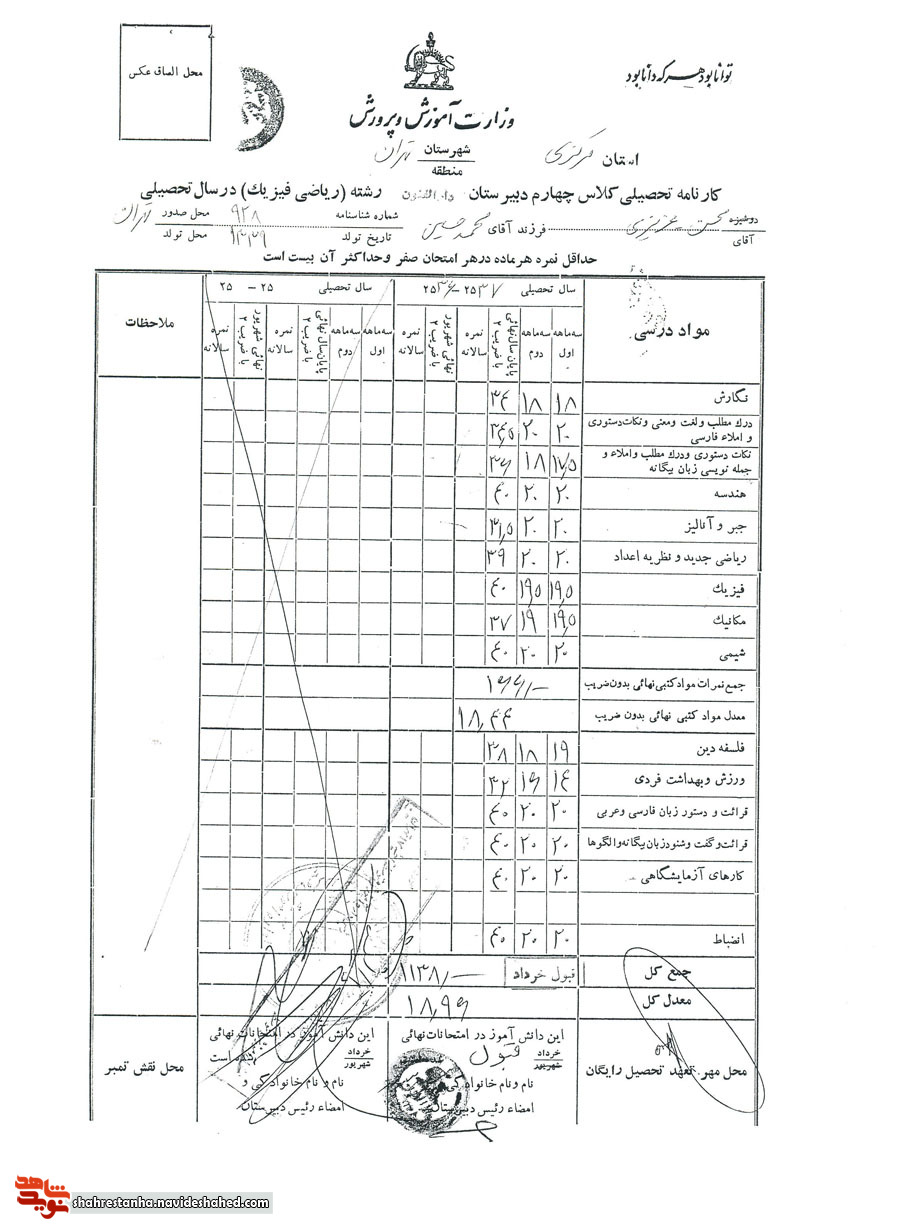 محل الصاق عکس
توانا بود هر که دانا بود
وزارت آموزش و پرورش
استان مرکزی
شهرستان تهران
منطقه
کارنامه تحصیلی کلاس چهارم دبیرستان دارالفنون رشته (ریاضی فیزیك) در سال تحصیلی
دوشیزه
آقای محسن عزیزی فرزند آقای محمد حسین
شماره شناسنامه ۹۲۸ محل صدور تهران
تاریخ تولد ۱۳۳۹ محل تولد
حداقل نمره هر ماده در هر امتحان صفر و حداکثر آن بیست است
مواد درسی
سال تحصیلی ۲۵۳۷ - ۲۵۳۶
سال تحصیلی ۲۵ - ۲۵
ملاحظات
سه ماهه اول سه ماهه دوم پایان سال نهائی با ضریب ۲ نهائی شهریور با ضریب ۲ نمره سالانه
سه ماهه اول سه ماهه دوم پایان سال نهائی با ضریب ۲ نمره سالانه نهائی شهریور با ضریب ۲ نمره سالانه
نگارش ۱۸ ۱۸ ۳۴
درك مطلب و لغت و معنی و نکات دستوری و املاء فارسی ۲۰ ۲۰
نکات دستوری و درك مطلب و املاء و جمله نویسی زبان بیگانه ۱۷٫۵ ۱۸ ۳۶
هندسه ۲۰ ۲۰ ۴۰
جبر و آنالیز ۲۰ ۲۰ ۳۱٫۵
ریاضی جدید و نظریه اعداد ۲۰ ۲۰ ۳۹
فیزیك ۱۹٫۵ ۱۹٫۵ ۴۰
مکانیك ۱۹٫۵ ۱۹ ۳۷
شیمی ۲۰ ۲۰ ۴۰
جمع نمرات مواد کتبی نهائی بدون ضریب ۱۶۶/-
معدل مواد کتبی نهائی بدون ضریب ۱۸٫۴۴
فلسفه دین ۱۹ ۱۸ ۳۸
ورزش و بهداشت فردی ۱۴ ۱۶ ۳۲
قرائت و دستور زبان فارسی و عربی ۲۰ ۲۰ ۴۰
قرائت و گفت و شنود زبان بیگانه و الگوها ۲۰ ۲۰ ۴۰
کارهای آزمایشگاهی ۲۰ ۲۰ ۴۰
انضباط ۲۰ ۲۰ ۴۰
جمع کل قبول خرداد ۱۱۳۸/-
معدل کل ۱۸٫۹۶
محل مهر تعهد تحصیل رایگان
این دانش آموز در امتحانات نهائی
خرداد
شهریور
قبول
نام و نام خانوادگی و
امضاء رئیس دبیرستان
این دانش آموز در امتحانات نهائی
خرداد
شهریور
شده است
نام و نام خانوادگی و
امضاء رئیس دبیرستان
محل نقش تمبر
نوید شاهد
shahrestanha.navideshahed.com